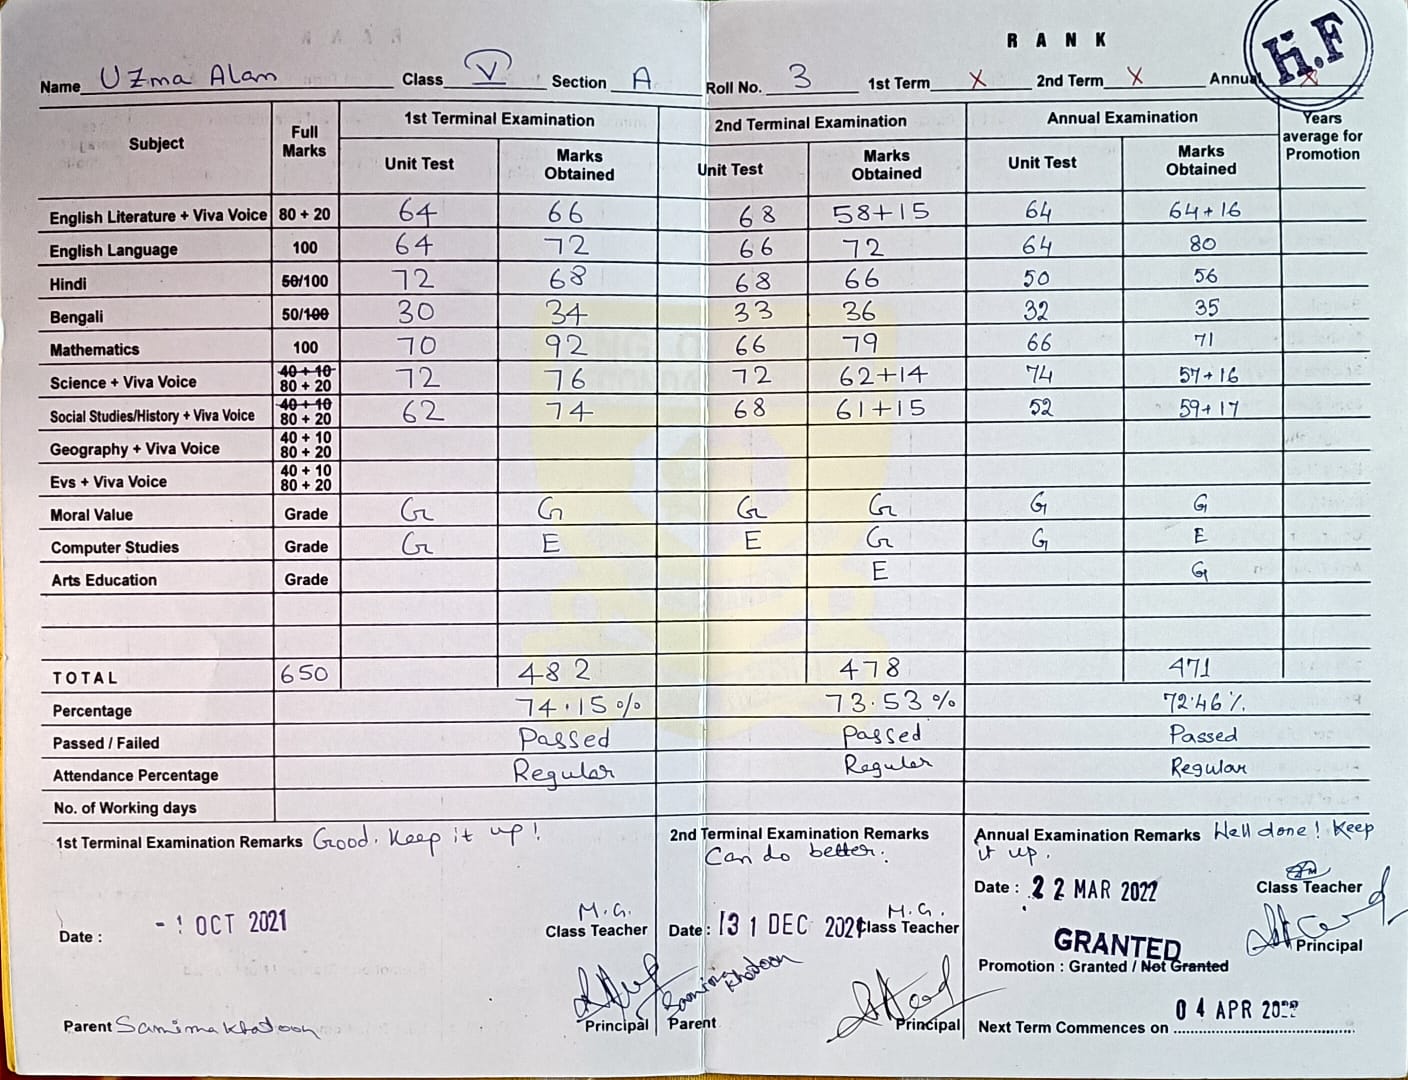 RANK
H.F
Name Uzma Alam Class V Section A Roll No. 3 1st Term X 2nd Term X Annual X
Subject Full Marks 1st Terminal Examination 2nd Terminal Examination Annual Examination Years average for Promotion
Unit Test Marks Obtained Unit Test Marks Obtained Unit Test Marks Obtained
English Literature + Viva Voice 80 + 20 64 66 68 58+15 64 64+16
English Language 100 64 72 66 72 64 80
Hindi 50/100 72 68 68 66 50 56
Bengali 50/100 30 34 33 36 32 35
Mathematics 100 70 92 66 79 66 71
Science + Viva Voice 40 + 10 80 + 20 72 76 72 62+14 74 57+16
Social Studies/History + Viva Voice 40 + 10 80 + 20 62 74 68 61+15 52 59+17
Geography + Viva Voice 40 + 10 80 + 20
Evs + Viva Voice 40 + 10 80 + 20
Moral Value Grade G G G G G G
Computer Studies Grade G E E G G E
Arts Education Grade E G
TOTAL 650 482 478 471
Percentage 74.15% 73.53% 72.46%
Passed / Failed Passed Passed Passed
Attendance Percentage Regular Regular Regular
No. of Working days
1st Terminal Examination Remarks Good. Keep it up!
2nd Terminal Examination Remarks
Can do better.
Annual Examination Remarks Well done! Keep
it up.
Date : - 1 OCT 2021
M.G.
Class Teacher
Date : 31 DEC 2021
M.G.
Class Teacher
Date : 22 MAR 2022
Class Teacher
GRANTED
Principal
Promotion : Granted / Not Granted
Parent Samima Khatoon
Principal
Samima Khatoon
Parent
Principal
Next Term Commences on 04 APR 2022